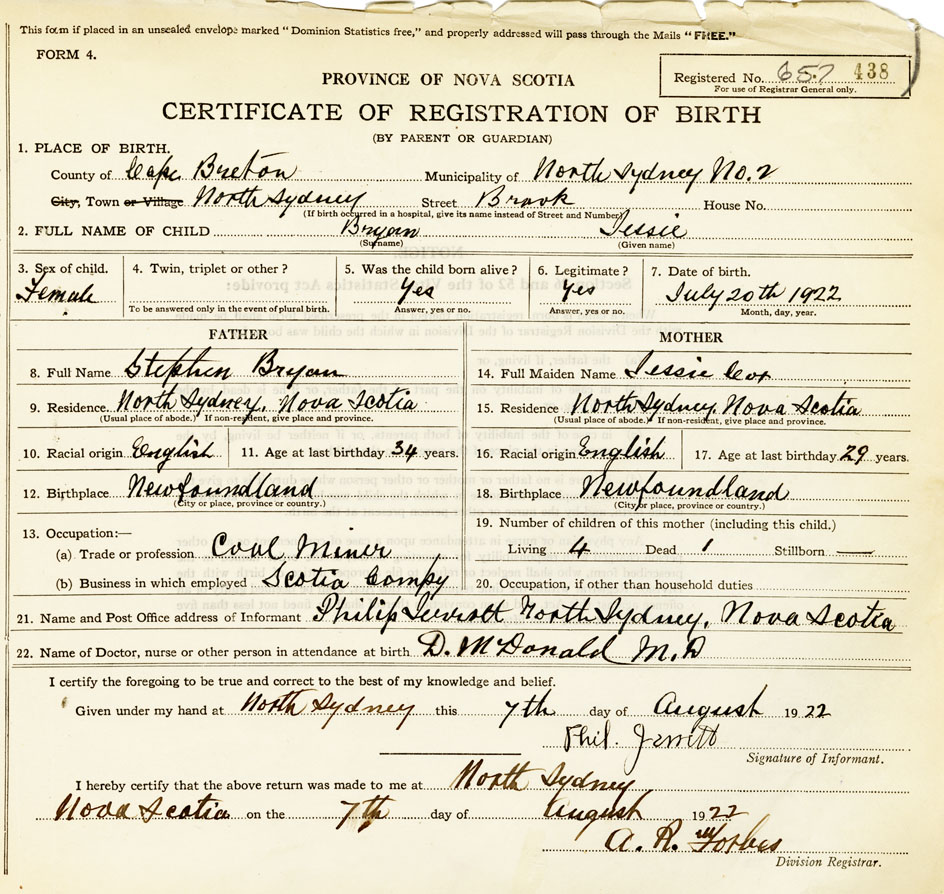 This form if placed in an unsealed envelope marked "Dominion Statistics free," and properly addressed will pass through the Mails "FREE."
FORM 4.
Registered No. 657 438
For use of Registrar General only.
PROVINCE OF NOVA SCOTIA
CERTIFICATE OF REGISTRATION OF BIRTH
(BY PARENT OR GUARDIAN)
1. PLACE OF BIRTH.
County of Cape Breton Municipality of North Sydney No. 2
City, Town or Village North Sydney Street Brook House No.
(If birth occurred in a hospital, give its name instead of Street and Number)
2. FULL NAME OF CHILD Bryan Jessie
(Surname) (Given name)
3. Sex of child. 4. Twin, triplet or other? 5. Was the child born alive? 6. Legitimate? 7. Date of birth.
Female Yes Yes July 20th 1922
To be answered only in the event of plural birth. Answer, yes or no. Answer, yes or no. Month, day, year.
FATHER MOTHER
8. Full Name Stephen Bryan 14. Full Maiden Name Jessie Cox
9. Residence North Sydney, Nova Scotia 15. Residence North Sydney Nova Scotia
(Usual place of abode.) If non-resident, give place and province. (Usual place of abode.) If non-resident, give place and province.
10. Racial origin English 11. Age at last birthday 34 years. 16. Racial origin English 17. Age at last birthday 29 years.
12. Birthplace Newfoundland 18. Birthplace Newfoundland
(City or place, province or country.) (City or place, province or country.)
13. Occupation:— 19. Number of children of this mother (including this child.)
(a) Trade or profession Coal Miner Living 4 Dead 1 Stillborn —
(b) Business in which employed Scotia Compy 20. Occupation, if other than household duties
21. Name and Post Office address of Informant Philip North Sydney, Nova Scotia
22. Name of Doctor, nurse or other person in attendance at birth D. McDonald M.D
I certify the foregoing to be true and correct to the best of my knowledge and belief.
Given under my hand at North Sydney this 7th day of August 1922
Phil.
Signature of Informant.
I hereby certify that the above return was made to me at North Sydney
Nova Scotia on the 7th day of August 1922
A. R. Forbes
Division Registrar.